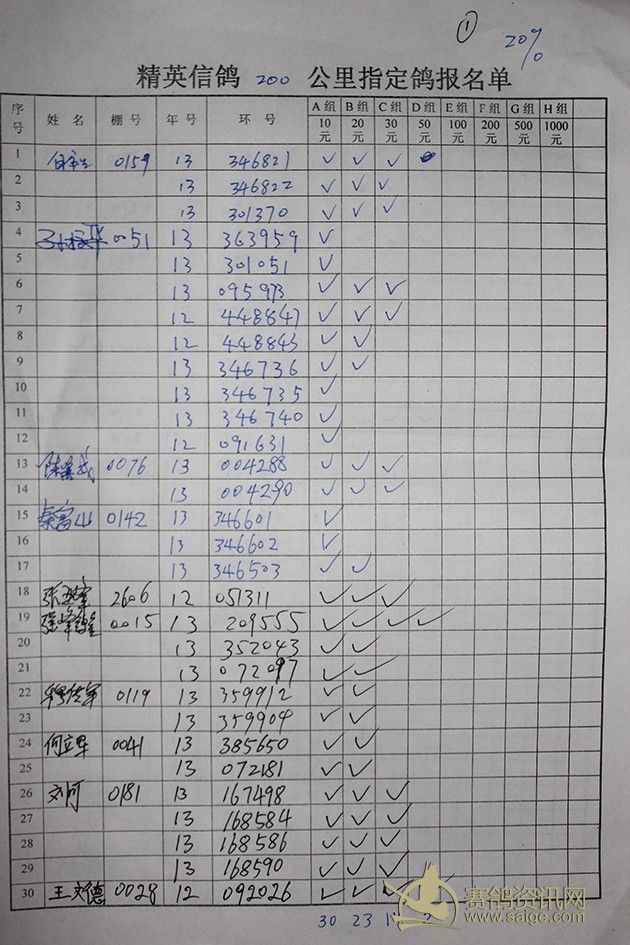 ①
20%
精英信鸽 200 公里指定鸽报名单
序号 姓名 棚号 年号 环号 A组 10元 B组 20元 C组 30元 D组 50元 E组 100元 F组 200元 G组 500元 H组 1000元
1 0159 13 346821 ✓ ✓ ✓
2 13 346822 ✓ ✓ ✓
3 13 301370 ✓ ✓ ✓
4 0051 13 363959 ✓
5 13 301051 ✓
6 13 095973 ✓ ✓ ✓
7 12 448847 ✓ ✓ ✓
8 12 448843 ✓ ✓
9 13 346736 ✓ ✓
10 13 346735 ✓
11 13 346740 ✓
12 12 091631 ✓
13 0076 13 004288 ✓ ✓ ✓
14 13 004290 ✓ ✓ ✓
15 秦富山 0142 13 346601 ✓
16 13 346602 ✓
17 13 346503 ✓ ✓
18 2606 12 051311 ✓ ✓ ✓
19 0015 13 209555 ✓ ✓ ✓ ✓
20 13 352043 ✓ ✓
21 13 072097 ✓ ✓
22 0119 13 359912 ✓ ✓
23 13 359904 ✓ ✓
24 何立军 0041 13 385650 ✓ ✓
25 13 072181 ✓ ✓
26 刘河 0181 13 167498 ✓ ✓ ✓
27 13 168584 ✓ ✓ ✓
28 13 168586 ✓ ✓ ✓
29 13 168590 ✓ ✓ ✓
30 王文德 0028 12 092026 ✓ ✓ ✓
30 23 2
赛鸽资讯网
www.saige.com